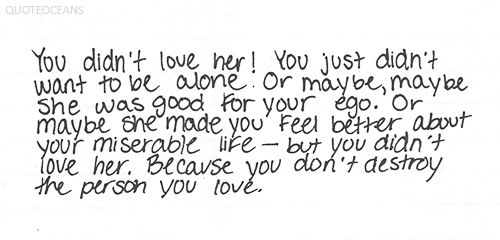 QUOTEOCEANS
You didn't love her! You just didn't
want to be alone. Or maybe, maybe
she was good for your ego. Or
maybe she made you feel better about
your miserable life – but you didn't
love her. Because you don't destroy
the person you love.